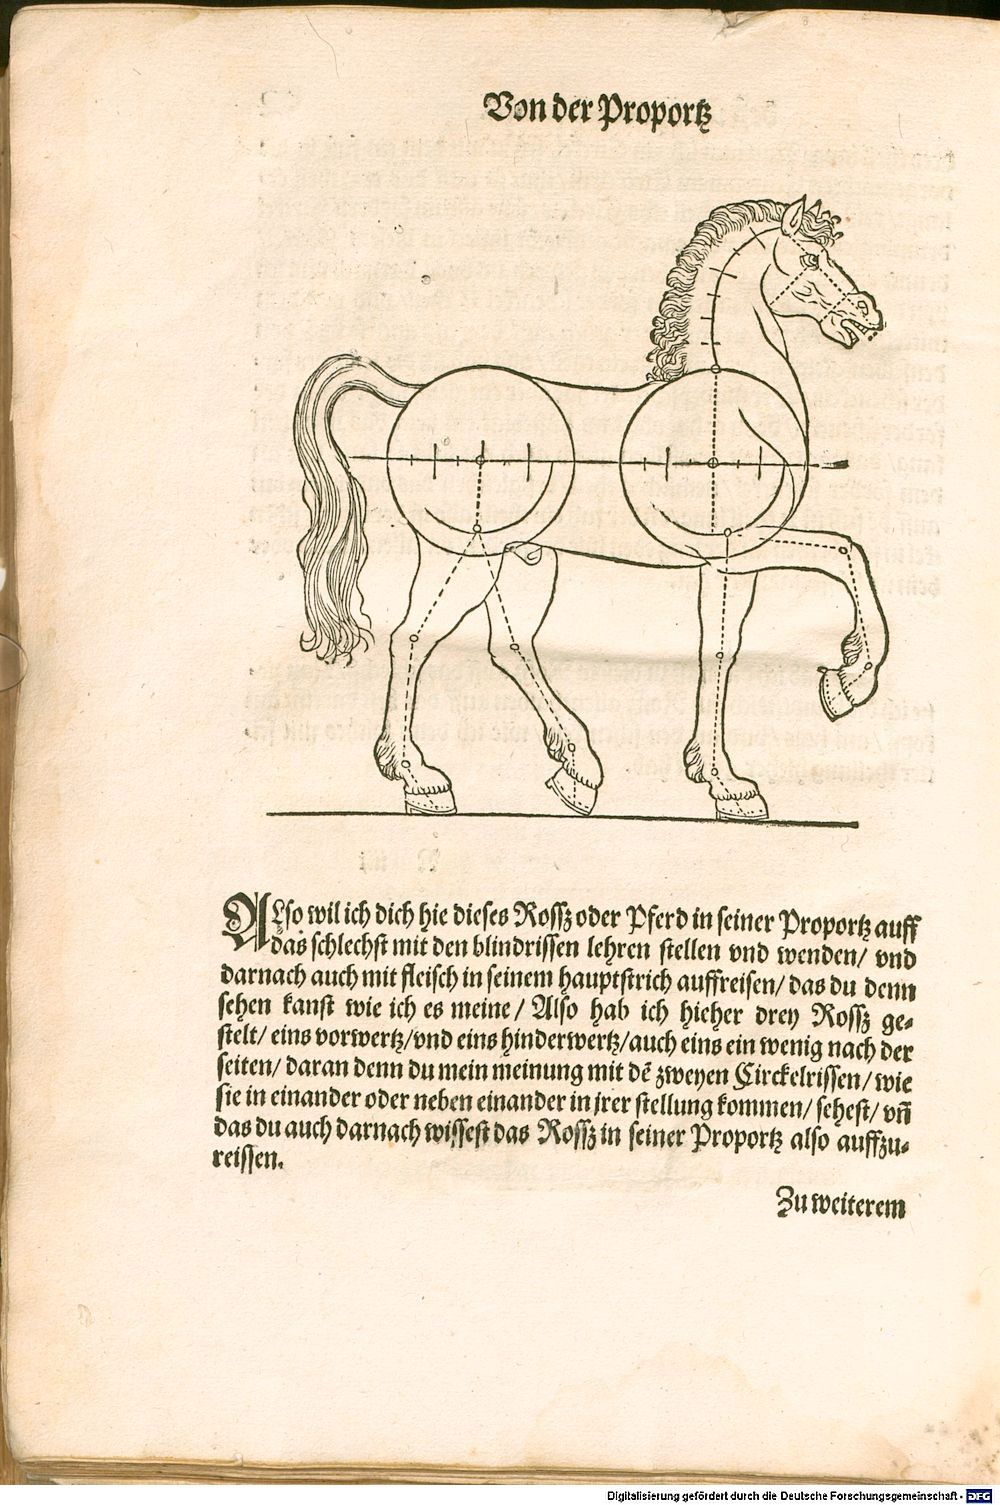 Von der Proportz
ALso wil ich dich hie dieses Rossz oder Pferd in seiner Proportz auff
das schlechst mit den blindrissen lehren stellen vnd wenden/ vnd
darnach auch mit fleisch in seinem hauptstrich auffreisen/ das du denn
sehen kanst wie ich es meine/ Also hab ich hieher drey Rossz ge⸗
stelt/ eins vorwertz/vnd eins hinderwertz/auch eins ein wenig nach der
seiten/ daran denn du mein meinung mit dẽ zweyen Circkelrissen/ wie
sie in einander oder neben einander in jrer stellung kommen/ sehest/ vñ
das du auch darnach wissest das Rossz in seiner Proportz also auffzu⸗
reissen.
Zu weiterem
Digitalisierung gefördert durch die Deutsche Forschungsgemeinschaft - DFG